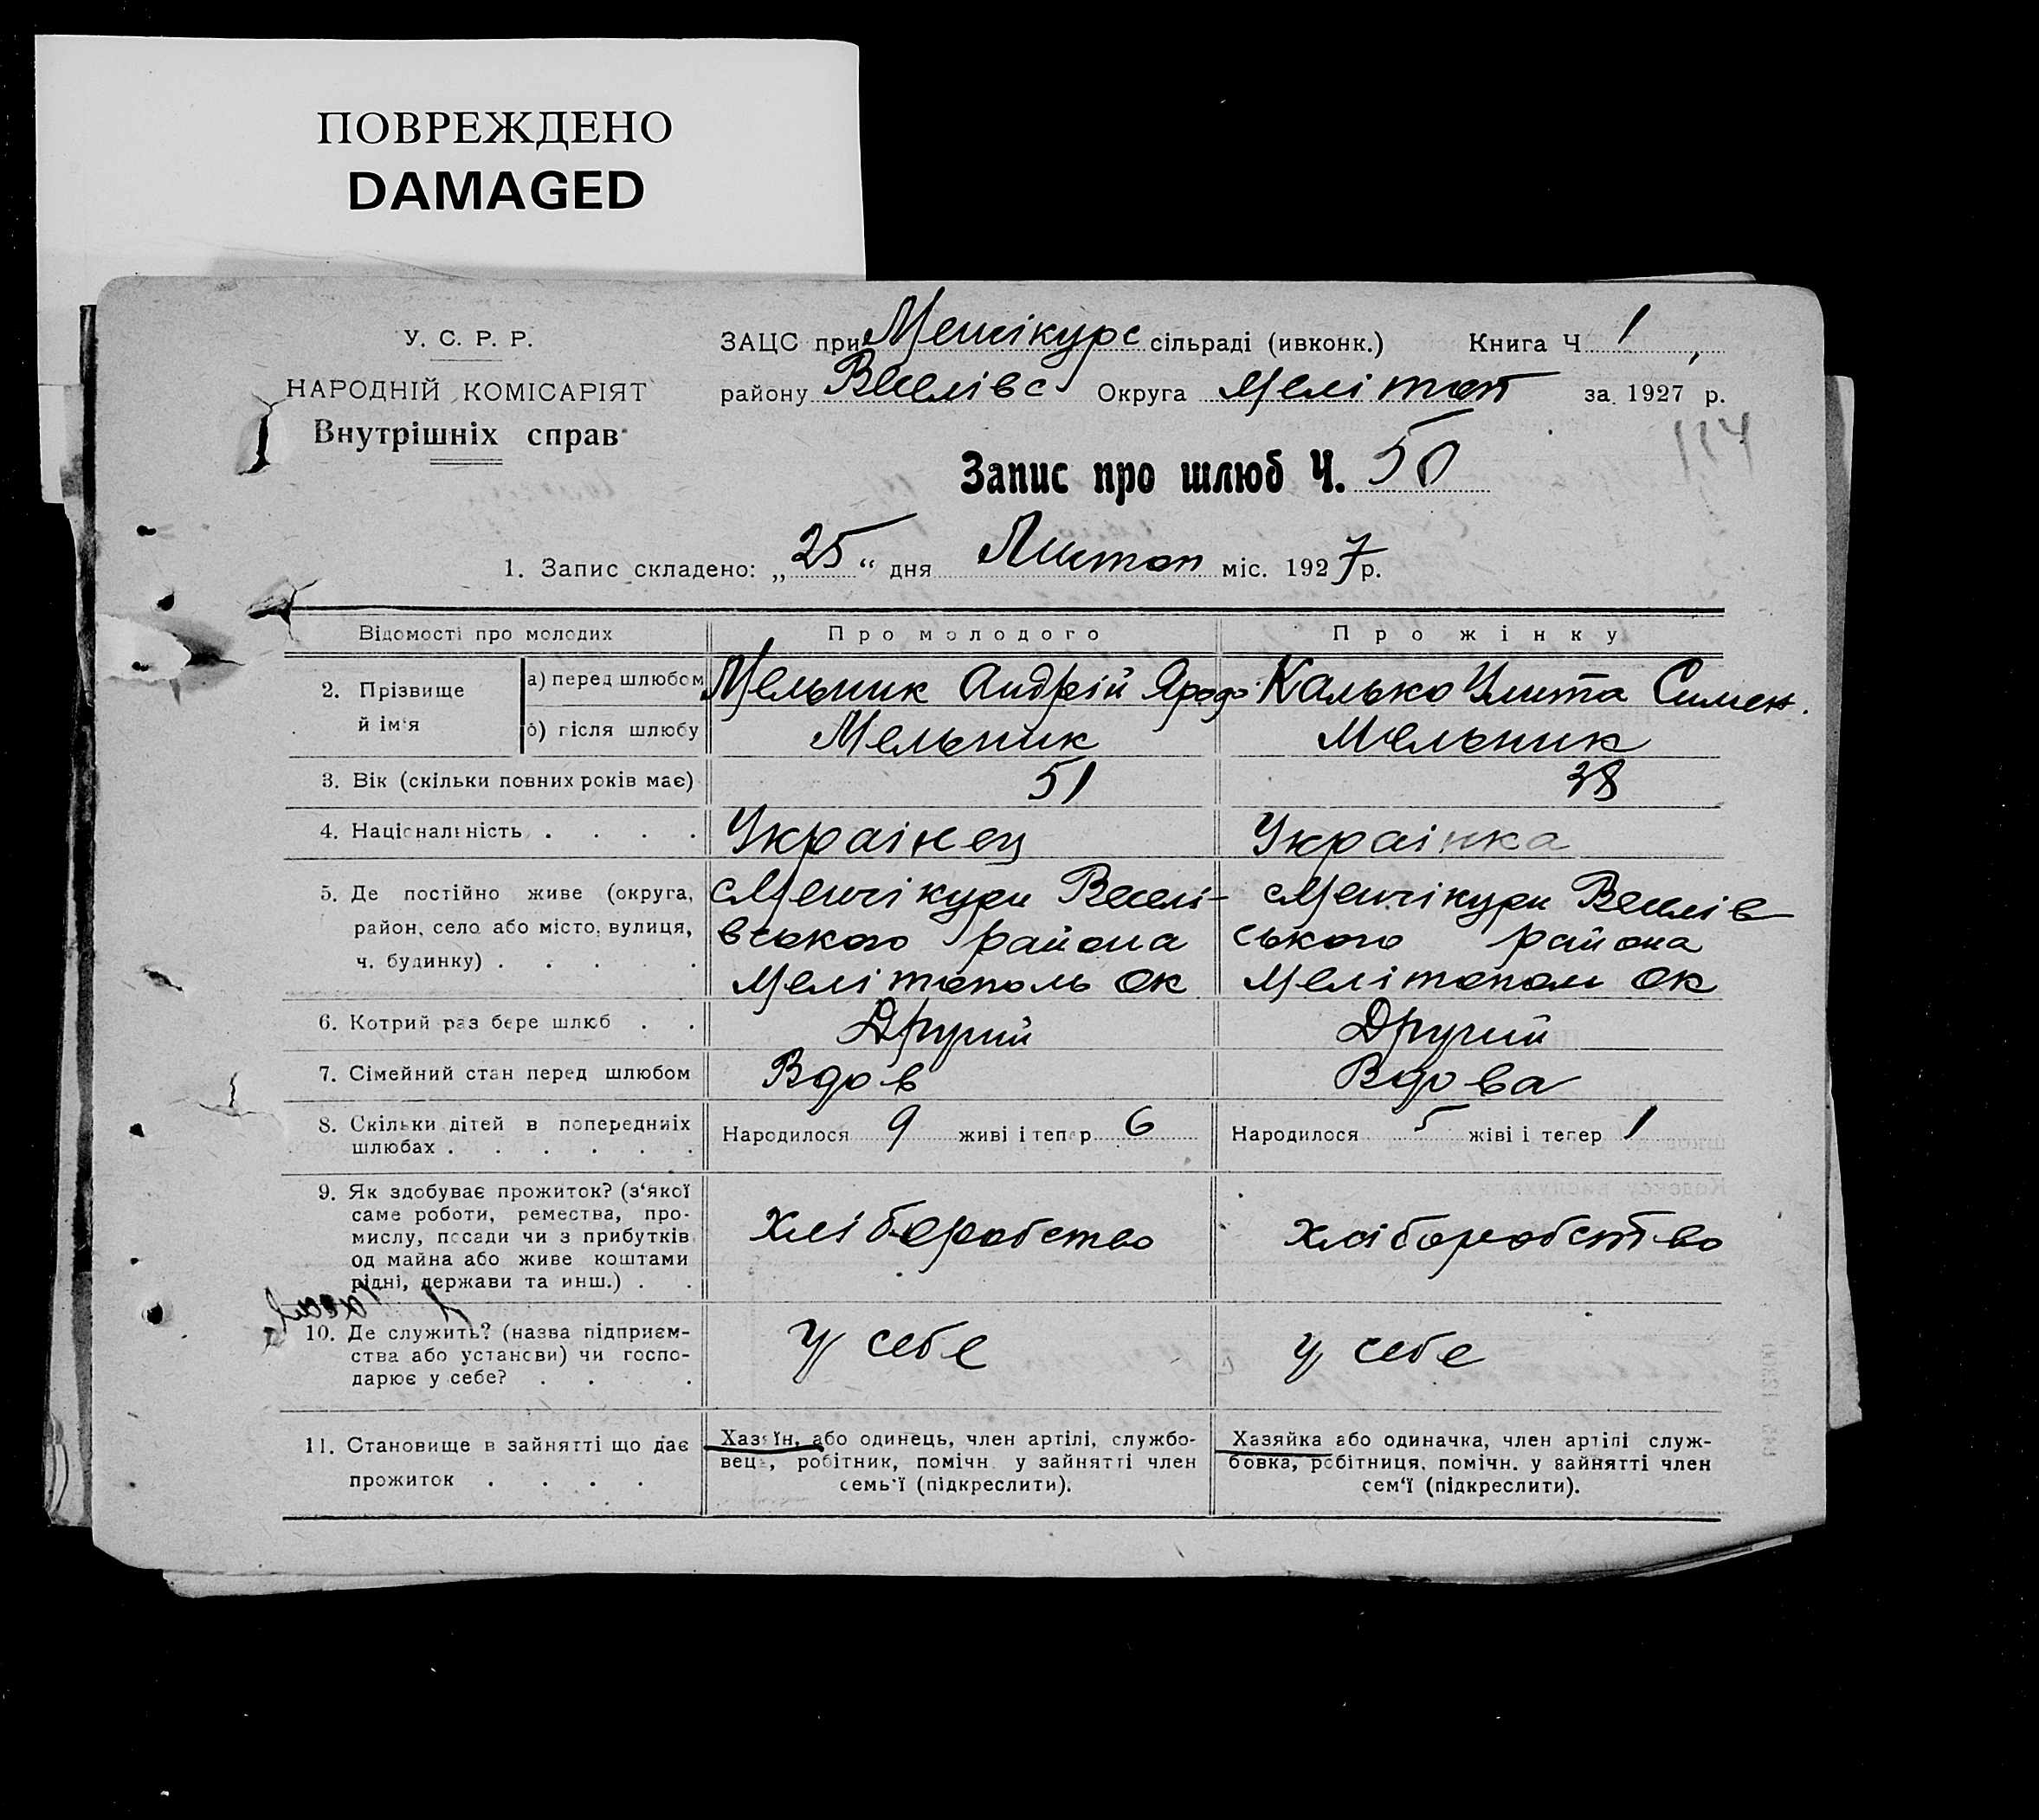 ПОВРЕЖДЕНО
DAMAGED
У. С. Р. Р.
НАРОДНІЙ КОМІСАРІЯТ
Внутрішніх справ
ЗАЦС при Менчікурс сільраді (ивконк.) Книга Ч 1
району Веселівс Округа Мелітоп за 1927 р.
Запис про шлюб Ч. 50
1. Запис складено: „25“ дня Листоп міс. 1927 р.
Відомості про молодих Про молодого Про жінку
2. Прізвище й ім'я
а) перед шлюбом Мельник Андрій Калько Улита Симен.
б) після шлюбу Мельник Мельник
3. Вік (скільки повних років має) 51 38
4. Національність . . . . Украінец Украінка
5. Де постійно живе (округа, Менчікури Веселі- Менчікури Веселів
район, село або місто, вулиця, вського района ського района
ч. будинку) . . . . . Мелітополь ок Мелітополь ок
6. Котрий раз бере шлюб . . Другий Другий
7. Сімейний стан перед шлюбом Вдов Вдова
8. Скільки дітей в попередніх Народилося 9 живі і тепер 6 Народилося 5 жіві і тепер 1
шлюбах . . . . . .
9. Як здобуває прожиток? (з‘якої
саме роботи, ремества, про-
мислу, посади чи з прибутків Хліборобство Хліборобство
од майна або живе коштами
рідні, держави та инш.) . .
10. Де служить? (назва підприєм- У себе У себе
ства або установи) чи госпо-
дарює у себе? . . .
11. Становище в зайнятті що дає Хазяїн, або одинець, член артілі, службо- Хазяйка або одиначка, член артілі служ-
прожиток . . . . вець, робітник, помічн. у зайнятті член бовка, робітниця, помічн. у зайнятті член
семь'ї (підкреслити). сем‘ї (підкреслити).